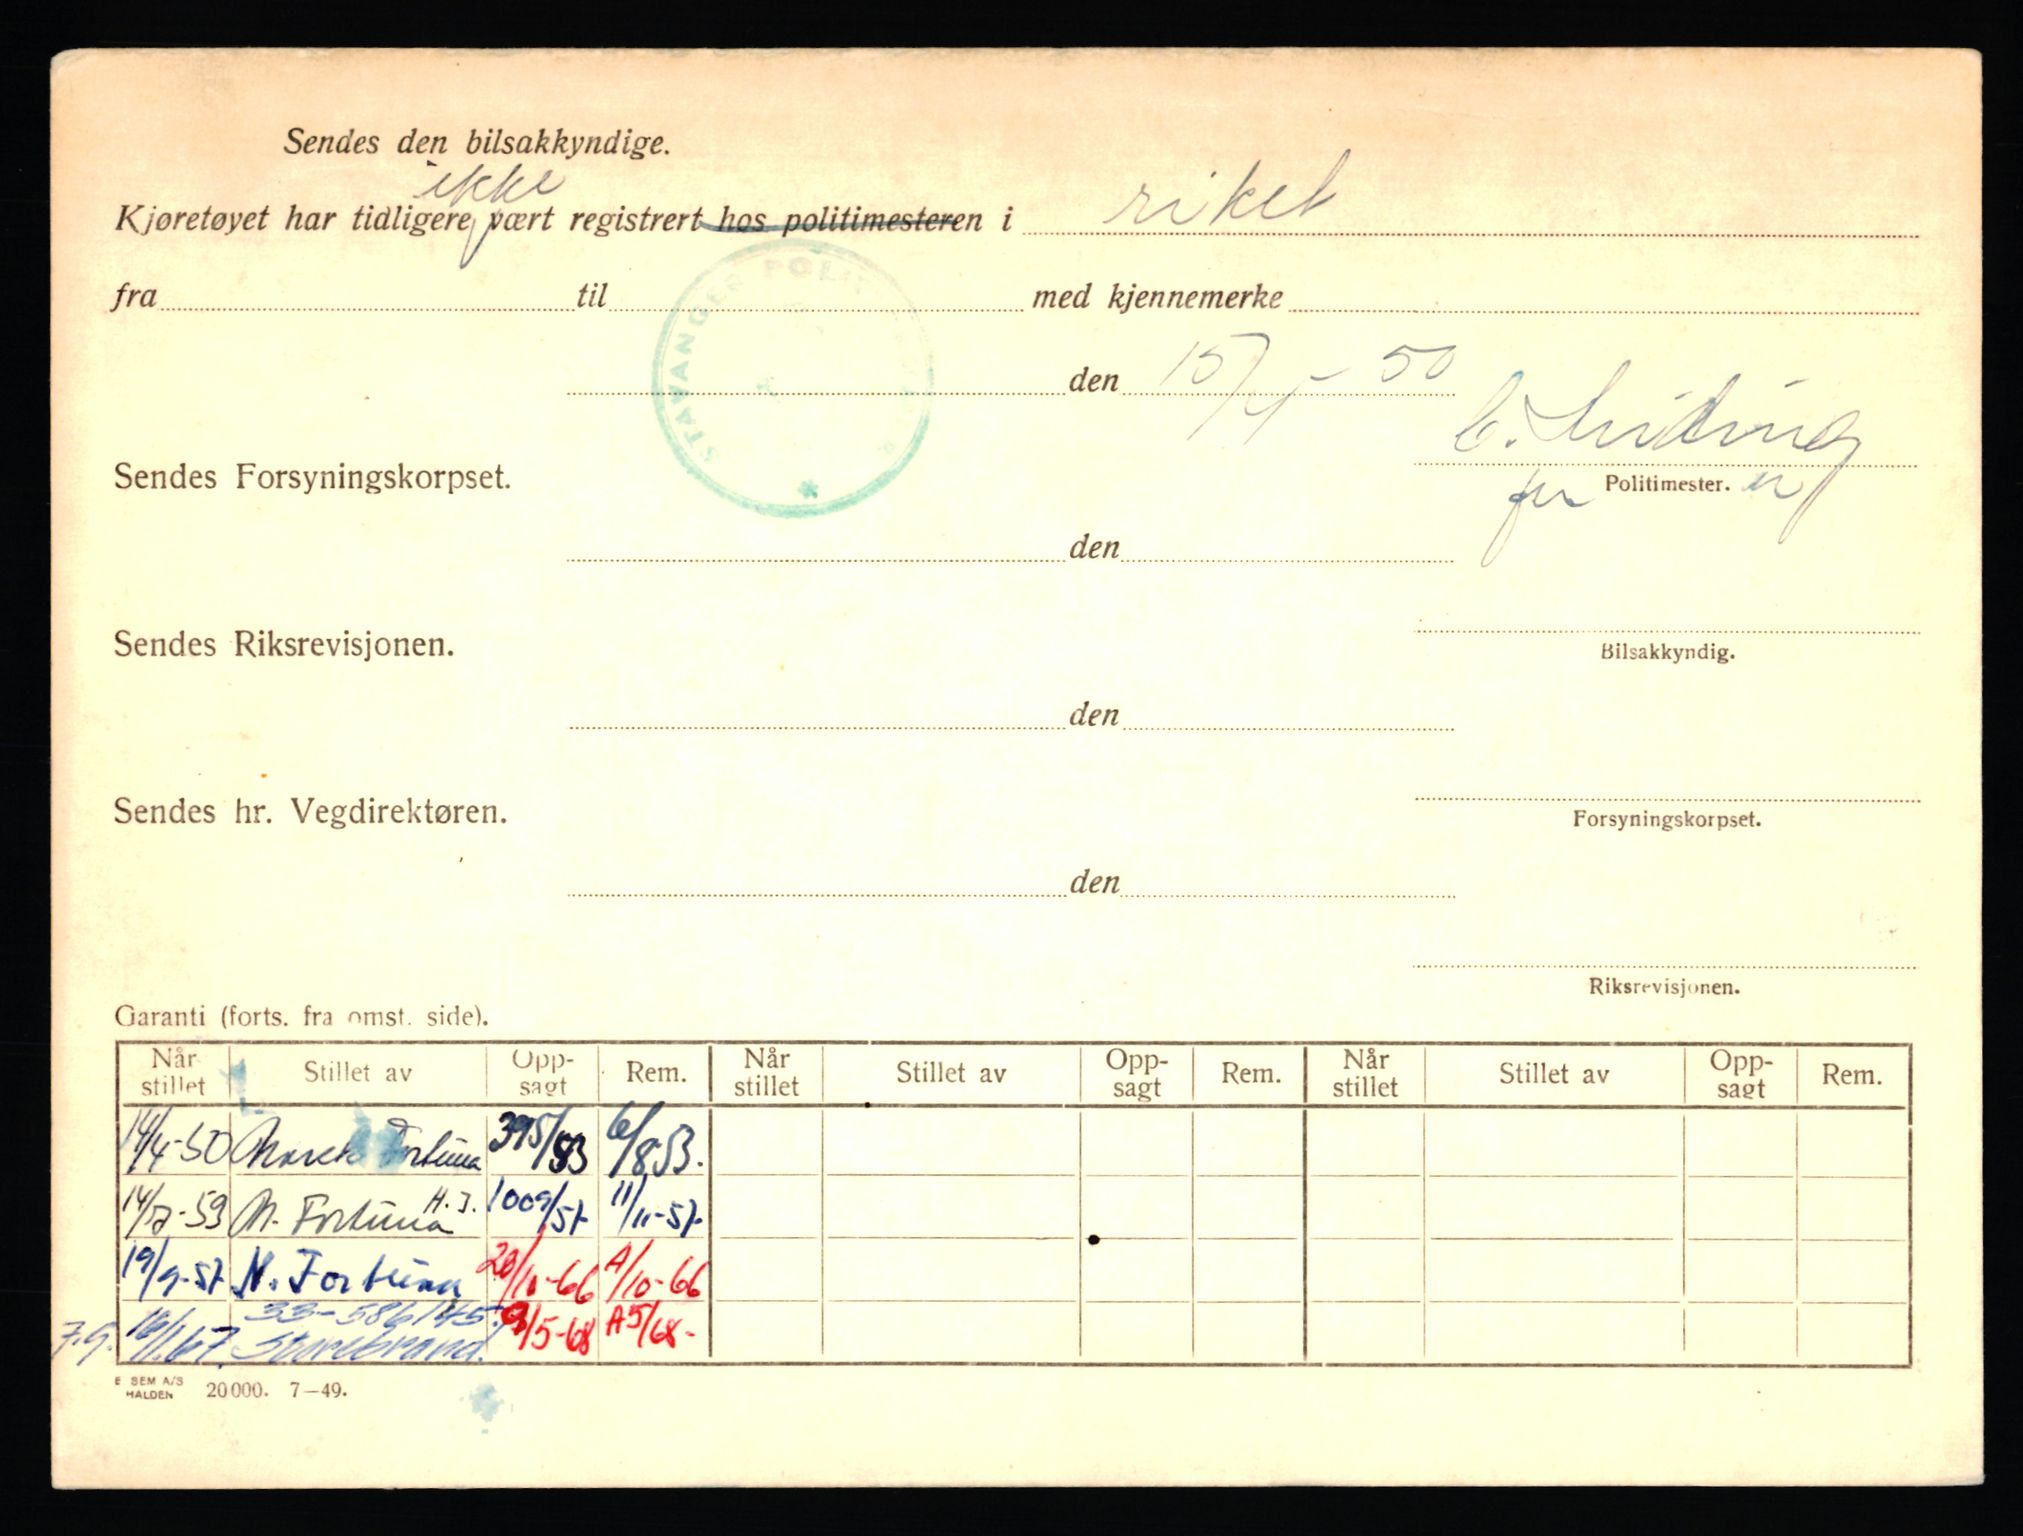 Sendes den bilsakkyndige.
ikke
Kjøretøyet har tidligere vært registrert hos politimesteren i riket
fra til med kjennemerke
STAVANGER POLI
den 15/4-50
Sendes Forsyningskorpset.
Politimester.
den
Sendes Riksrevisjonen.
Bilsakkyndig.
den
Sendes hr. Vegdirektøren.
Forsyningskorpset.
den
Riksrevisjonen.
Garanti (forts. fra omst. side).
Når stillet Stillet av Opp-sagt Rem. Når stillet Stillet av Opp-sagt Rem. Når stillet Stillet av Opp-sagt Rem.
14/4-50 Norsk Fortuna 395/53 6/8 53.
N. Fortuna 1009/57 11/11-57
19/9-57 N. Fortuna 20/10-66 A/10-66
33-586145
16/1.67. Storebrand. 9/5-68 A5/68-
E SEM A/S
HALDEN 20000. 7-49.